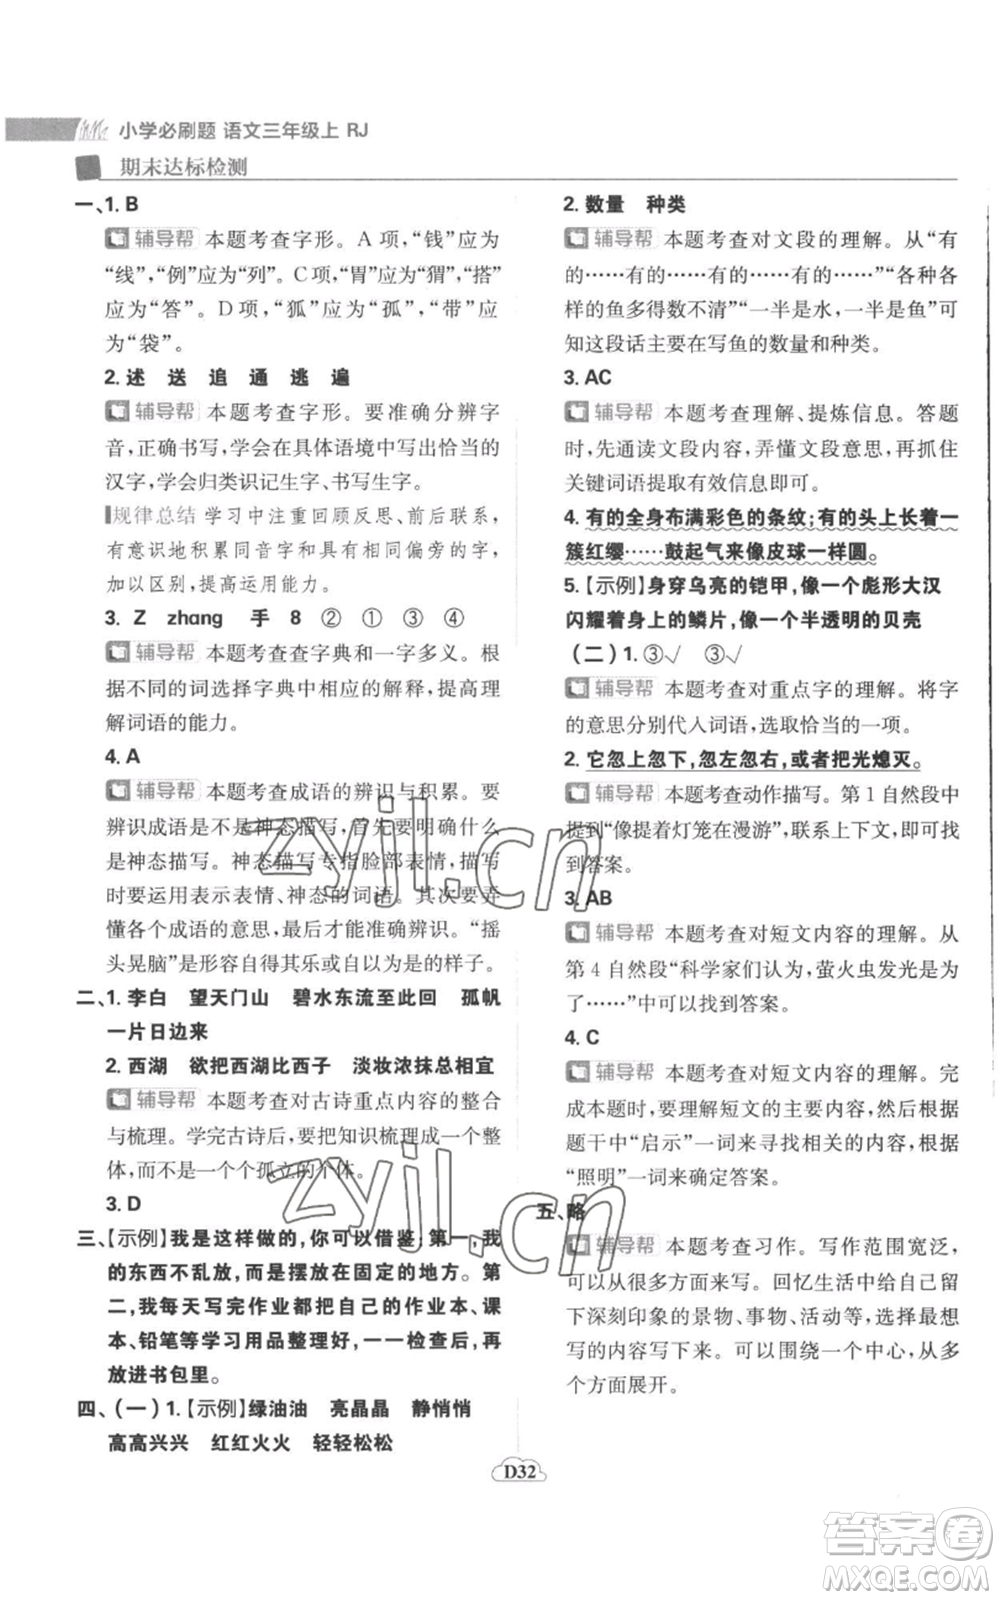 小学必刷题 语文三年级上 RJ
期末达标检测
一、1. B
辅导帮 本题考查字形。A 项，“钱”应为
“线”，“例”应为“列”。C 项，“胃”应为“猬”，“搭”
应为“答”。D 项，“狐”应为“孤”，“带”应
为“袋”。
2. 述 送 追 通 逃 遍
辅导帮 本题考查字形。要准确分辨字
音，正确书写，学会在具体语境中写出恰当的
汉字，学会归类识记生字、书写生字。
规律总结 学习中注重回顾反思、前后联系，
有意识地积累同音字和具有相同偏旁的字，
加以区别，提高运用能力。
3. Z zhang 手 8 ② ① ③ ④
辅导帮 本题考查查字典和一字多义。根
据不同的词选择字典中相应的解释，提高理
解词语的能力。
4. A
辅导帮 本题考查成语的辨识与积累。要
辨识成语是不是神态描写，首先要明确什么
是神态描写。神态描写专指脸部表情，描写
时要运用表示表情、神态的词语。其次要弄
懂各个成语的意思，最后才能准确辨识。“摇
头晃脑”是形容自得其乐或自以为是的样子。
二、1. 李白 望天门山 碧水东流至此回 孤帆
一片日边来
2. 西湖 欲把西湖比西子 淡妆浓抹总相宜
辅导帮 本题考查对古诗重点内容的整合
与梳理。学完古诗后，把知识梳理成一个整
体，而不是一个个孤立的个体。
3. D
三、【示例】我是这样做的，你可以借鉴：第一，我
的东西不乱放，而是摆放在固定的地方。第
二，我每天写完作业都把自己的作业本、课
本、铅笔等学习用品整理好，一一检查后，再
放进书包里。
四、（一）1.【示例】绿油油 亮晶晶 静悄悄
高高兴兴 红红火火 轻轻松松
2. 数量 种类
辅导帮 本题考查对文段的理解。从“有
的……有的……有的……有的……”“各种各
样的鱼多得数不清”“一半是水，一半是鱼”可
知这段话主要在写鱼的数量和种类。
3. AC
辅导帮 本题考查理解、提炼信息。答题
时，先通读文段内容，弄懂文段意思，再抓住
关键词语提取有效信息即可。
4. 有的全身布满彩色的条纹；有的头上长着一
簇红缨……鼓起气来像皮球一样圆。
5.【示例】身穿乌亮的铠甲，像一个彪形大汉
闪耀着身上的鳞片，像一个半透明的贝壳
（二）1. ③√ ③√
辅导帮 本题考查对重点字的理解。将字
的意思分别代入词语，选取恰当的一项。
2. 它忽上忽下，忽左忽右，或者把光熄灭。
辅导帮 本题考查动作描写。第 1 自然段中
提到“像提着灯笼在漫游”，联系上下文，即可
找到答案。
3. AB
辅导帮 本题考查对短文内容的理解。从
第 4 自然段“科学家们认为，萤火虫发光是为
了……”中可以找到答案。
4. C
辅导帮 本题考查对短文内容的理解。完
成本题时，要先理解短文的主要内容，然后根据
题干中“启示”一词来寻找相关的内容，根据
“照明”一词来确定答案。
五、略
辅导帮 本题考查习作。写作范围宽泛，
可以从很多方面来写。回忆生活中给自己留
下深刻印象的景物、事物、活动等，选择最想
写的内容写下来。可以围绕一个中心，从多
个方面展开。
D32
zyjl.cn
zyjl.cn
答案卷
MXQE.COM